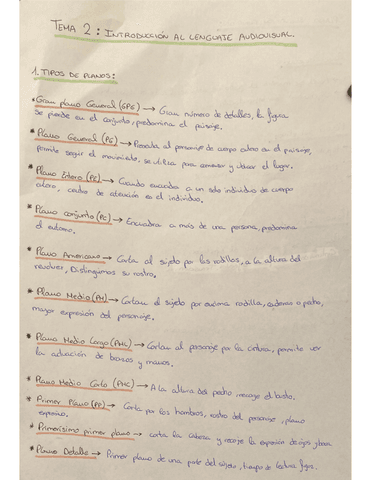 TEMA 2: INTRODUCCIÓN AL LENGUAJE AUDIOVISUAL.
1. TIPOS DE PLANOS:
* Gran plano General (GPG) → Gran número de detalles, la figura
se pierde en el conjunto, predomina el paisaje.
* Plano General (PG) → al personaje de cuerpo entero en el paisaje,
permite seguir el movimiento, se utiliza para y ubicar el lugar.
* Plano Entero (PE) → Cuando encuadra a un solo individuo de cuerpo
entero, centro de atención es el individuo.
* Plano conjunto (PC) → Encuadra a más de una persona, predomina
el entorno.
* Plano Americano → Corta al sujeto por las rodillas, a la altura del
revolver, Distinguimos su rostro.
* Plano Medio (PM) → Cortan el sujeto por encima rodilla, caderas o pecho,
mayor expresión del personaje.
* Plano Medio Largo (PML) → Cortan al personaje por la cintura, permite ver
la actuación de brazos y manos.
* Plano Medio Corto (PMC) → A la altura del pecho, recoge el busto.
* Primer Plano (PP) → Corta por los hombros, rostro del personaje, plano
expresivo.
* Primerísimo primer plano → corta la cabeza y recoje la expresión de ojos y boca
* Plano Detalle → Primer plano de una parte del sujeto, tiempo de lectura fija.